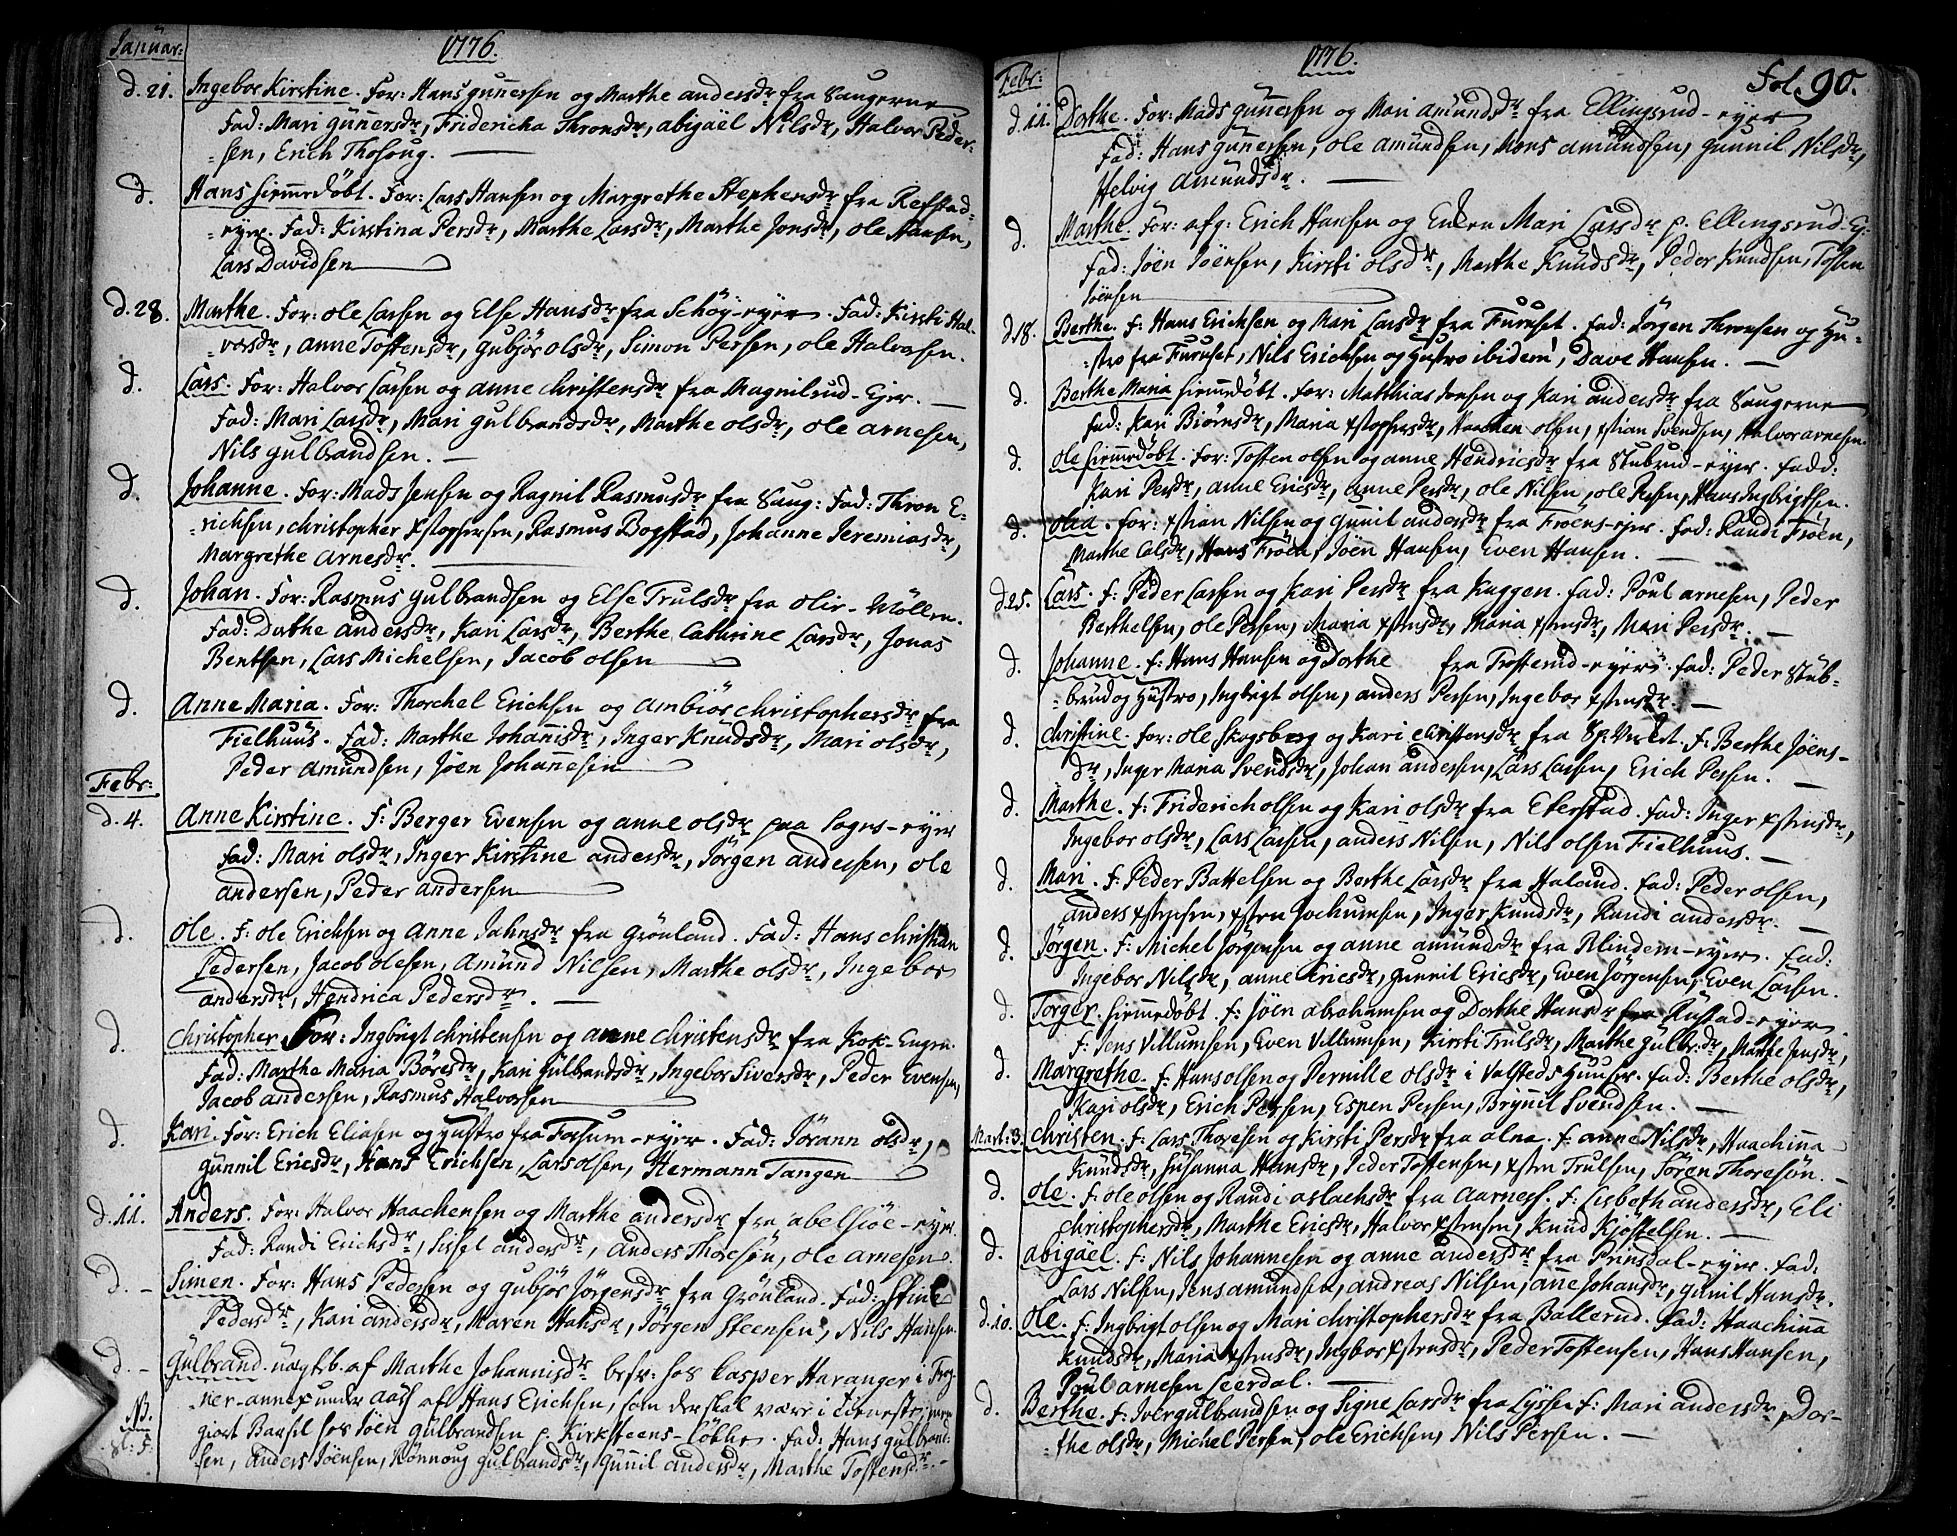 Januar:
1776.
d. 21. Ingebor Kirstine. For: Hans Gunnersen og Marthe andersdr fra Saugerne
Fad: Mari Gunnersdr, Fridericha Thronsdr, abigael Nilsdr, Halvor Peder-
-sen, Erich Thosoug.
d. Hans hiemmedøbt. For: Lars Hansen og Margrethe Stephensdr fra Refstad-
-eyer. Fad: Kirstina Persdr, Marthe Larsdr, Marthe Jonsdr, Ole Hansen,
Lars Davidsen
d. 28. Marthe. For: ole Larsen og Else Hansdr fra Schöy-eyer. Fad: Kirsti Hal-
vorsdr, Anne Tostensdr, Gubjör olsdr, Simon Persen, ole Halvorsen.
d. Lars. For: Halvor Larsen og anne christensdr fra Magnilrud-Ejer.
Fad: Mari Larsdr, Mari Gulbrandsdr, Marthe olsdr, ole arnesen,
Nils Gulbrandsen.
d. Johanne. For: Mads Jensen og Ragnil Rasmusdr fra Haug: Fad: Thron E-
-richsen, christopher xstoppersen, Rasmus Bogstad, Johanne Jeremiasdr,
Margrethe Arnesdr.
d. Johan. For: Rasmus Gulbrandsen og Else Trulsdr fra Olie-Möllen.
Fad: Dorthe andersdr, Kari Larsdr, Berthe Cathrine Larsdr, Jonas
Bentsen, Lars Michelsen, Jacob olsen
d. Anne Maria. For: Thorchel Erichsen og Ambiör christophersdr fra
Fielhuus. Fad: Marthe Johannisdr, Inger Knudsdr, Mari olsdr,
Peder Amundsen, Jöen Johannesen
Febr:
d. 4. Anne Kirstine. F: Berger Evensen og anne olsdr paa Sogns-eyer
Fad: Mari olsdr, Inger Kirstine andersdr, Jörgen andersen, ole
andersen, Peder andersen
d. Ole. F: ole Erichsen og Anne Jahnsdr fra Grönland. Fad: Hans christian
Pedersen, Jacob olesen, Amund Nilsen, Marthe olsdr, Ingebor
andersdr, Hendrica Pedersdr.
d. Christopher. For: Ingbrigt christensen og anne christensdr fra Kok-Engen.
Fad: Marthe Maria Böresdr, Kari Gulbrandsdr, Ingebor Siversdr, Peder Evensen,
Jacob andersen, Rasmus Halvorsen
d. Kari. For: Erich Eliasen og Hustro fra Forsum-eyer. Fad: Jörann olsdr,
Gunnil Ericsdr, Hans Erichsen, Lars olsen, Hermann Tangen
d. 11. Anders. For: Halvor Haachensen og Marthe andersdr fra abelsöe-eyer.
Fad: Randi Erichsdr, Sissel andersdr, Anders Thoresön, ole arnesen
d. - Simen. For: Hans Pedersen og Gubjör Jörgensdr fra Grönland. Fad: Stine
Pedersdr, Kari andersdr, Maren Hansdr, Jörgen Steensen, Nils Hansen.
d. - Gulbrand. uægtb. af Marthe Johannisdr besv: hos Casper Haranger i Frog-
NB. ner-annex under Aas af Hans Erichsen, som der skal være i Tieneste,
giort Barsel hos Jöen Gulbrandsen p. Kirksteens-Löbbe. Fad: Hans Gulbrand-
sen, Anders Jöensen, Rönnoug Gulbrandsdr, Gunnil andersdr, Marthe Tostensdr.
Febr:
1776.
Fol. 90.
d. 11. Dorthe. For: Mads Gunnersen og Mari Amundsdr fra Ellingsrud-eyer
Fad: Hans Gunnersen, ole Amundsen, Mons Amundsen, Gunnil Nilsdr,
Helvig Amundsdr.
d. Marthe. For: afg: Erich Hansen og Enken Mari Larsdr p. Ellingsrud-E:
Fad: Jöen Jöensen, Kirsti olsdr, Marthe Knudsdr, Peder Knudsen, Tosten
Jöensen
d 18. Berthe. f: Hans Erichsen og Mari Larsdr fra Furuset. Fad: Jörgen Thronsen og Hu-
-stro fra Furuset, Nils Erichsen og Hustro ibidem, Dave Hansen.
d. Berthe Maria hiemmedøbt. For: Matthias Jonsen og Kari andersdr fra Saugerne
Fad: Kari Biörnsdr, Maria xstophersdr, Haachen olsen, xstian Svendsen, Halvor arnesen.
d. ole hiemmedøbt. For: Tosten olsen og anne Hendricsdr fra Stubrud-eyer. Fadd:
Kari Persdr, anne Ericsdr, anne Persdr, ole Nilsen, ole Persen, Hans Ingbrigtsen.
d. olea. For: xstian Nilsen og Gunil andersdr fra Fröens-ejer. Fad: Randi Fröen,
Marthe Colsdr, Hans Fröen, Jöen Hansen, Even Hansen.
d. 25. Lars. f: Peder Larsen og Kari Persdr fra Kuggen. Fad: Poul arnesen, Peder
Berthelsen, ole Persen, Maria xstensdr, Maria xstensdr, Mari Persdr.
d. Johanne. f: Hans Hansen og Dorthe fra Trosterud-eyer. Fad: Peder Stub-
-brud og Hustro, Ingbrigt olsen, anders Persen, Ingebor xstensdr.
d. christine. For: ole Skogsberg og Kari christensdr fra Sp: F: Berthe Jöens-
dr, Inger Maria Svendsdr, Johan andersen, Lars Larsen, Erich Persen.
d. Marthe. f: Friderich olsen og Kari olsdr fra Eterstad. Fad: Inger xstensdr,
Ingebor olsdr, Lars Larsen, anders Nilsen, Nils olsen Fielhuus.
d. Mari. f: Peder Battelsen og Berthe Larsdr fra Haland. Fad: Peder olsen,
anders xstophsen, xsten Jochumsen, Inger Knudsdr, Randi andersdr.
d. Jörgen. F: Michel Jörgensen og anne amundsdr fra Blindern-eyer. Fad:
Ingebor Nilsdr, anne Ericsdr, Gunnil Ericsdr, Even Jörgensen, Even Larsen.
d. Torger. hiemmedøbt. f: Jöen abrahamsen og Dorthe Hansdr fra Rustad-eyer.
f: Jens Villumsen, Even Villumsen, Kirsti Trulsdr, Marthe Gulbr:dr, Marthe Jensdr,
d. Margrethe. f: Hans olsen og Pernille olsdr i Valsteds Huuser. Fad: Berthe olsdr,
Kari olsdr, Erich Persen, Espen Persen, Brynnil Svendsen.
Mart: 3. christen. f: Lars Thoresen og Kirsti Persdr fra alna. f: anne Nilsdr, Haachinna
Knudsdr, Susanna Hansdr, Peder Tostensen, xsten Trulsen, Sören Thoresön.
d. ole. f: ole olsen og Randi aslachsdr fra Aarness. f: Lisbeth andersdr, Eli
christophersdr, Marthe Ericsdr, Halvor xstensen, Knud Kjöstelsen.
d. abigael. f: Nils Johannesen og anne andersdr fra Prinsdal-eyer. Fad:
Lars Nilsen, Jens amundsen, andreas Nilsen, ane Johansdr, Gunil Hansdr.
d. 10. Ole. f: Ingbrigt olsen og Mari christophersdr fra Ballerud. Fad: Haachinna
Knudsdr, Maria xstensdr, Ingbor xstensdr, Peder Tostensen, Hans Hansen,
Poul arnesen Leerdal.
d. Berthe. f: Iver gulbrandsen og Signe Larsdr fra Lysse. f: Mari andersdr, Dor-
-the olsdr, Michel Persen, ole Erichsen, Nils Persen.